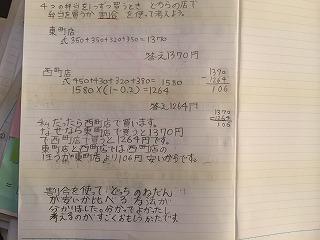 4つの弁当を1つずつ買うとき どちらの店で
弁当を買うか 割合 を使って考えよう。
東町店
式 350+350+320+350=1370
答え1370円
西町店
式 450+430+320+380=1580
1580×(1-0.2)=1264
答え1264円
1370
-1264
106
私だったら西町店で買います。
なぜなら東町店で買うと1370円
西町店で買うと1264円です。
東町店と西町店では西町店の
ほうが東町店より106円安いからです。
1370
-1264
106
割合を使って どっちのねだん
が安いか比べる方法が
分かりました。分かってよかったし
考えるのがすごくおもしろかったです